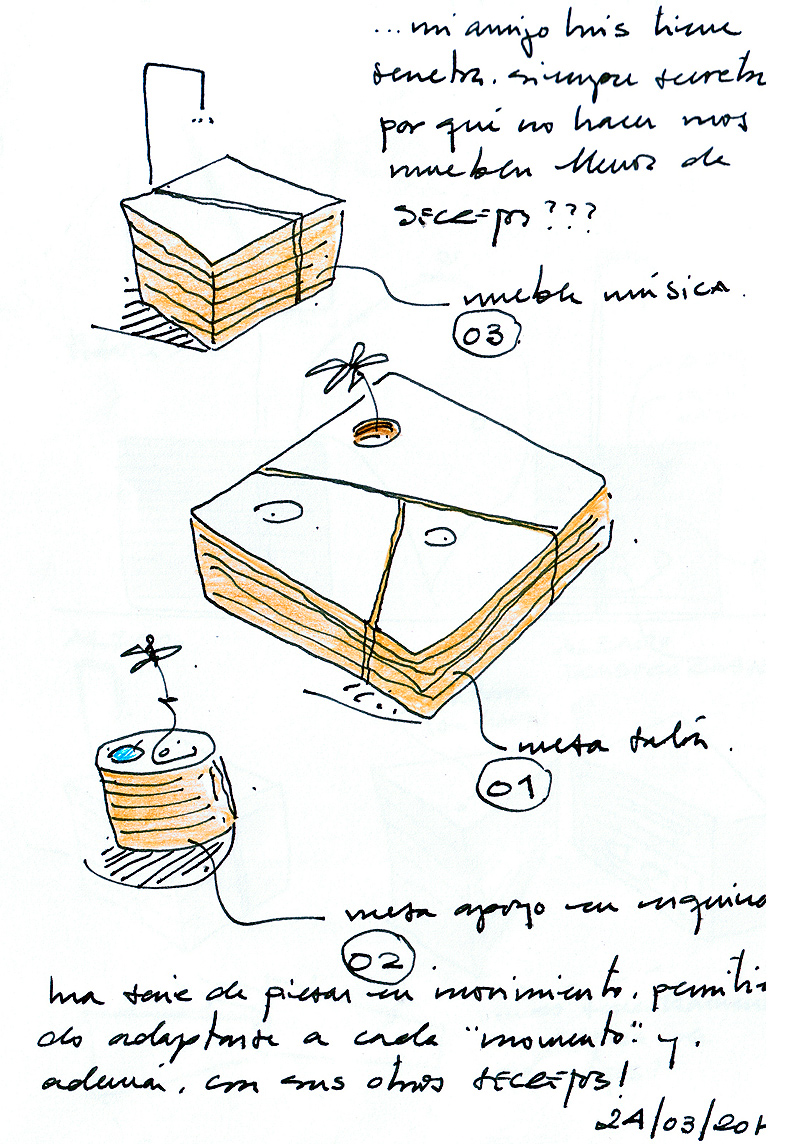 ...mi amigo luis tiene
siempre secretos
por qué no hacer unos
muebles llenos de
SECRETOS???
mueble música.
03
mesa salón.
01
mesa apoyo en esquina
02
una serie de piezas en movimiento, permitien
do adaptarse a cada "momento" y,
además, con sus otros SECRETOS!
24/03/201